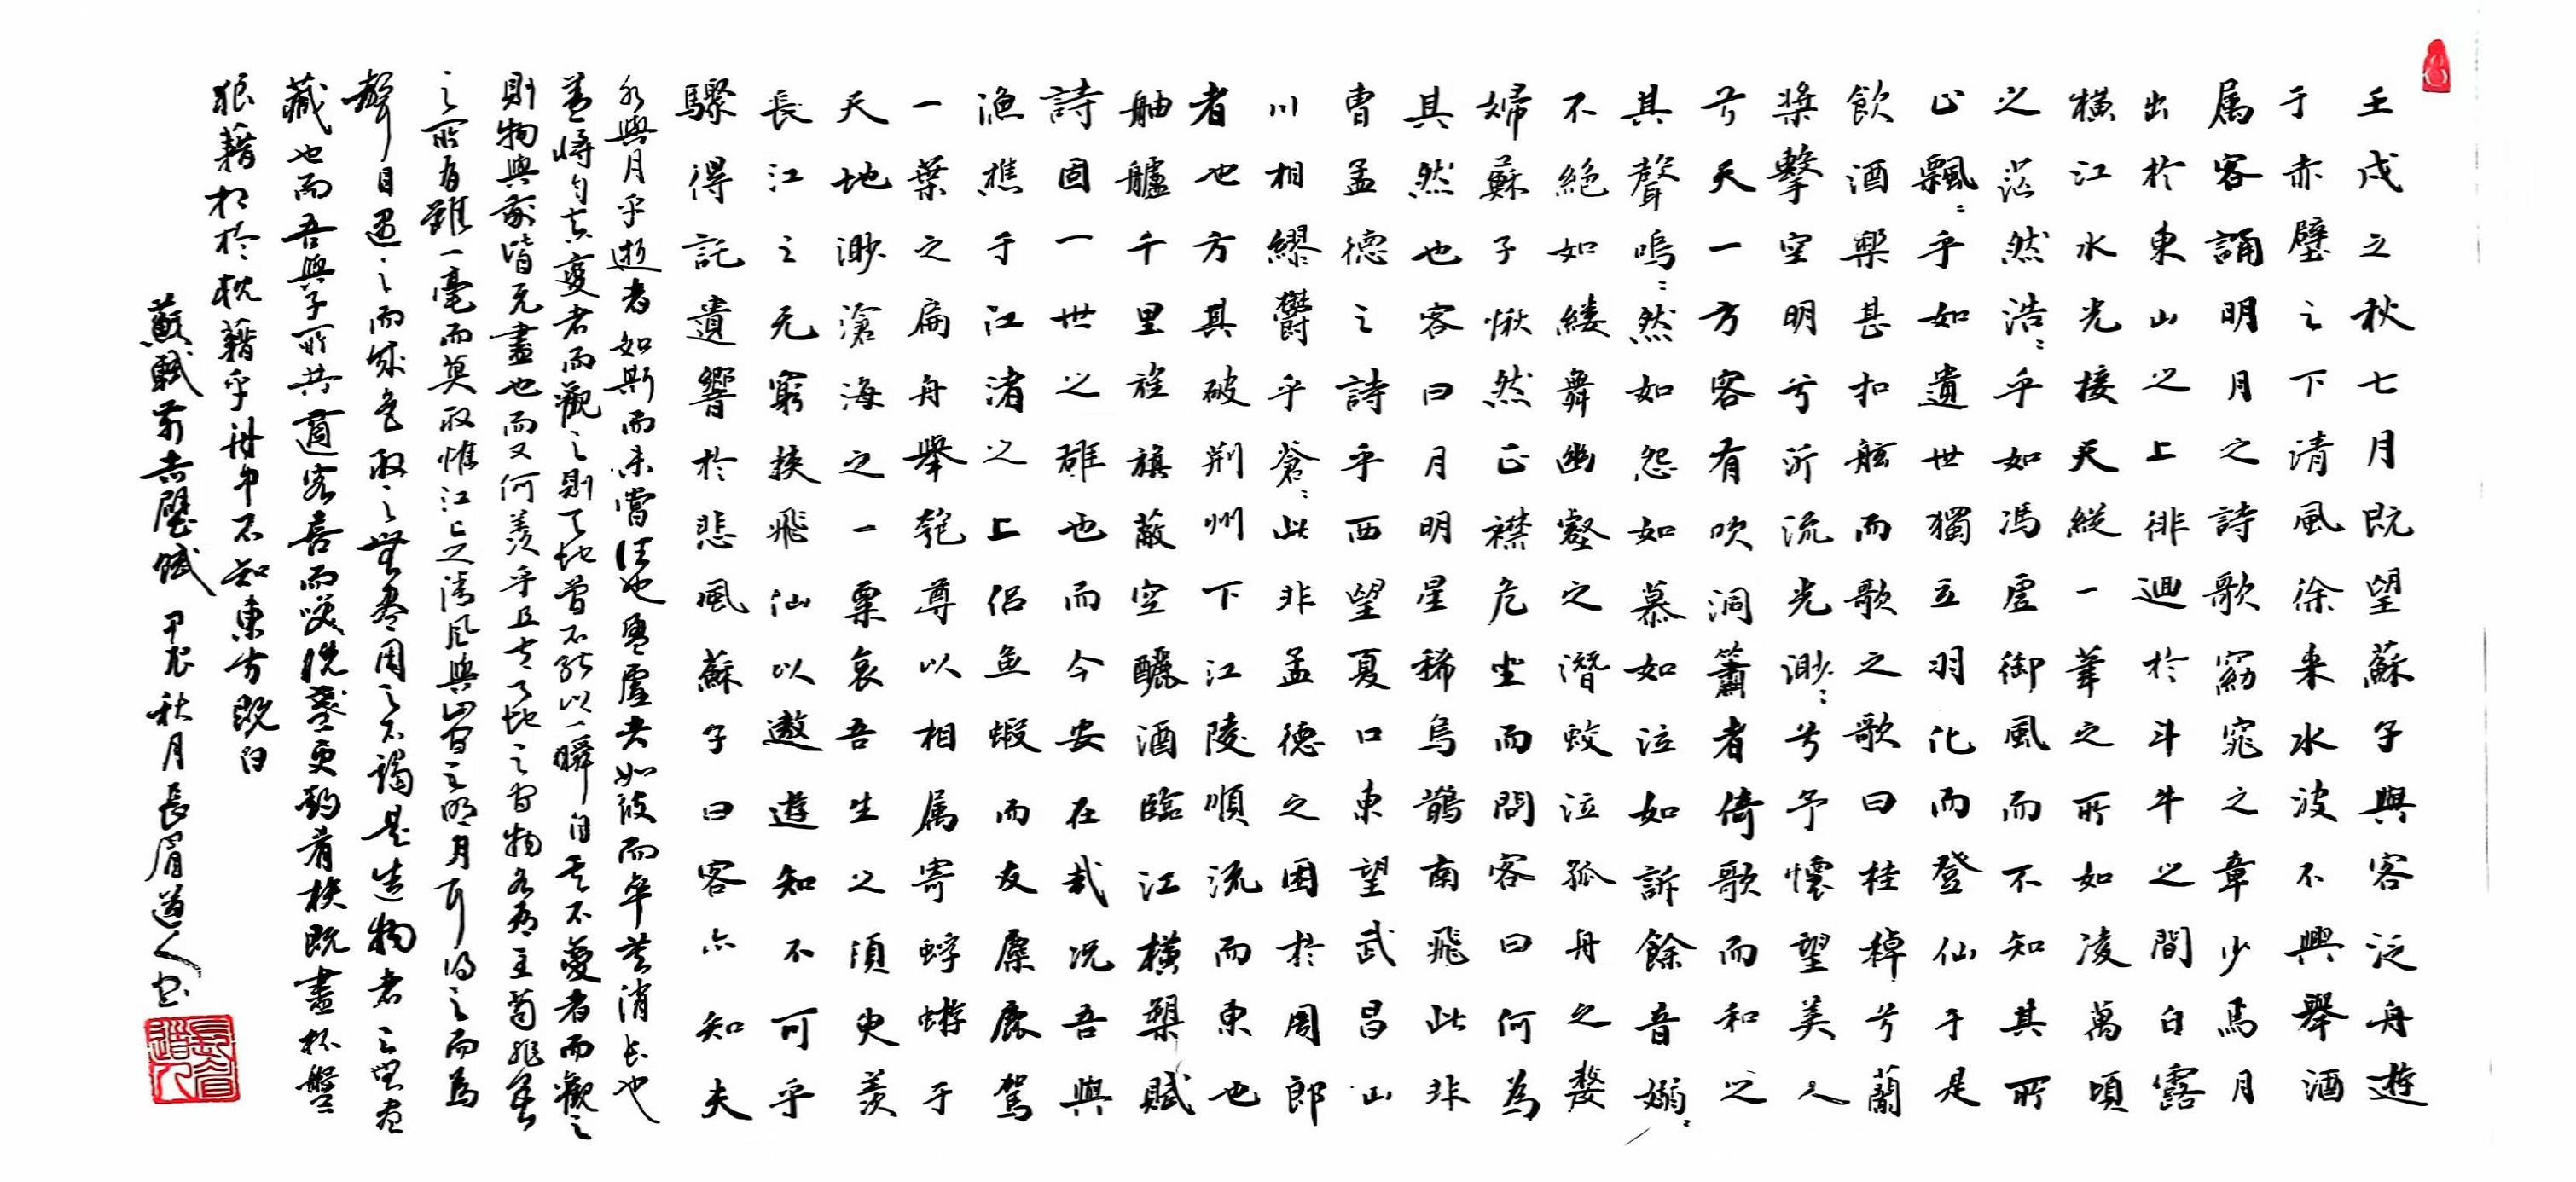 壬戌之秋七月既望蘇子與客泛舟遊
于赤壁之下清風徐来水波不興舉酒
属客誦明月之詩歌窈窕之章少焉月
出於東山之上徘迴於斗牛之間白露
橫江水光接天縱一葦之所如凌萬頃
之茫然浩〻乎如馮虛御風而不知其所
止飄〻乎如遺世獨立羽化而登仙于是
飲酒樂甚扣舷而歌之歌曰桂棹兮蘭
槳擊空明兮泝流光渺〻兮予懷望美人
兮天一方客有吹洞簫者倚歌而和之
其聲嗚〻然如怨如慕如泣如訴餘音嫋〻
不絕如縷舞幽壑之潛蛟泣孤舟之嫠
婦蘇子愀然正襟危坐而問客曰何為
其然也客曰月明星稀烏鵲南飛此非
曹孟德之詩乎西望夏口東望武昌山
川相繆鬱乎蒼〻此非孟德之困於周郎
者也方其破荆州下江陵順流而東也
舳艫千里旌旗蔽空釃酒臨江橫槊賦
詩固一世之雄也而今安在哉况吾與
漁樵于江渚之上侣魚蝦而友麋鹿駕
一葉之扁舟舉匏尊以相属寄蜉蝣于
天地渺滄海之一粟哀吾生之須臾羨
長江之无窮挾飛仙以遨遊知不可乎
驟得託遺響於悲風蘇子曰客亦知夫
水與月乎逝者如斯而未嘗往也盈虛者如彼而卒莫消長也
蓋將自其變者而觀之則天地曾不能以一瞬自其不變者而觀之
則物與我皆无盡也而又何羨乎且夫天地之間物各有主苟非吾
之所有雖一毫而莫取惟江上之清風與山間之明月耳得之而為
聲目遇之而成色取之無盡用之不竭是造物者之無盡
藏也而吾與子所共適客喜而笑洗盞更酌肴核既盡杯盤
狼藉相於枕藉乎舟中不知東方既白
蘇軾前赤壁賦 甲辰秋月長眉道人书
長眉道人